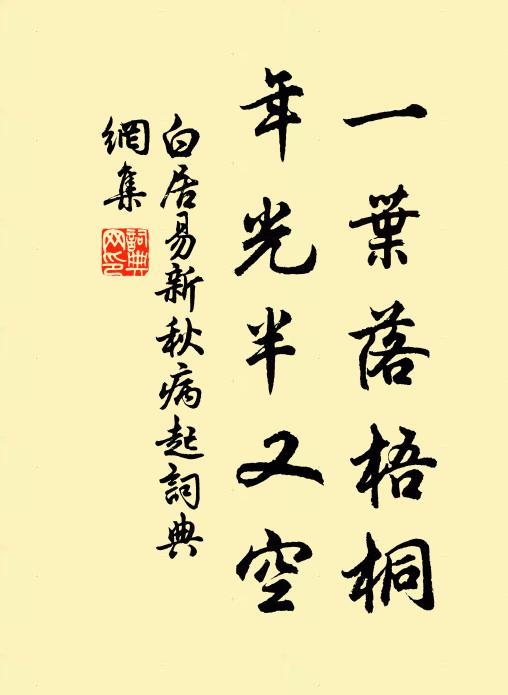 一葉落梧桐
年光半又空
白居易新秋病起詞典
網集
詞典
网印